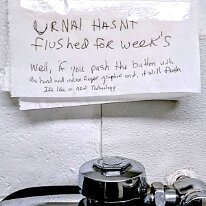 URNAl HASNT
flushed for week's
Well, if you push the button with
the hand and index finger graphic on it, it will flush
It's like a new Technology